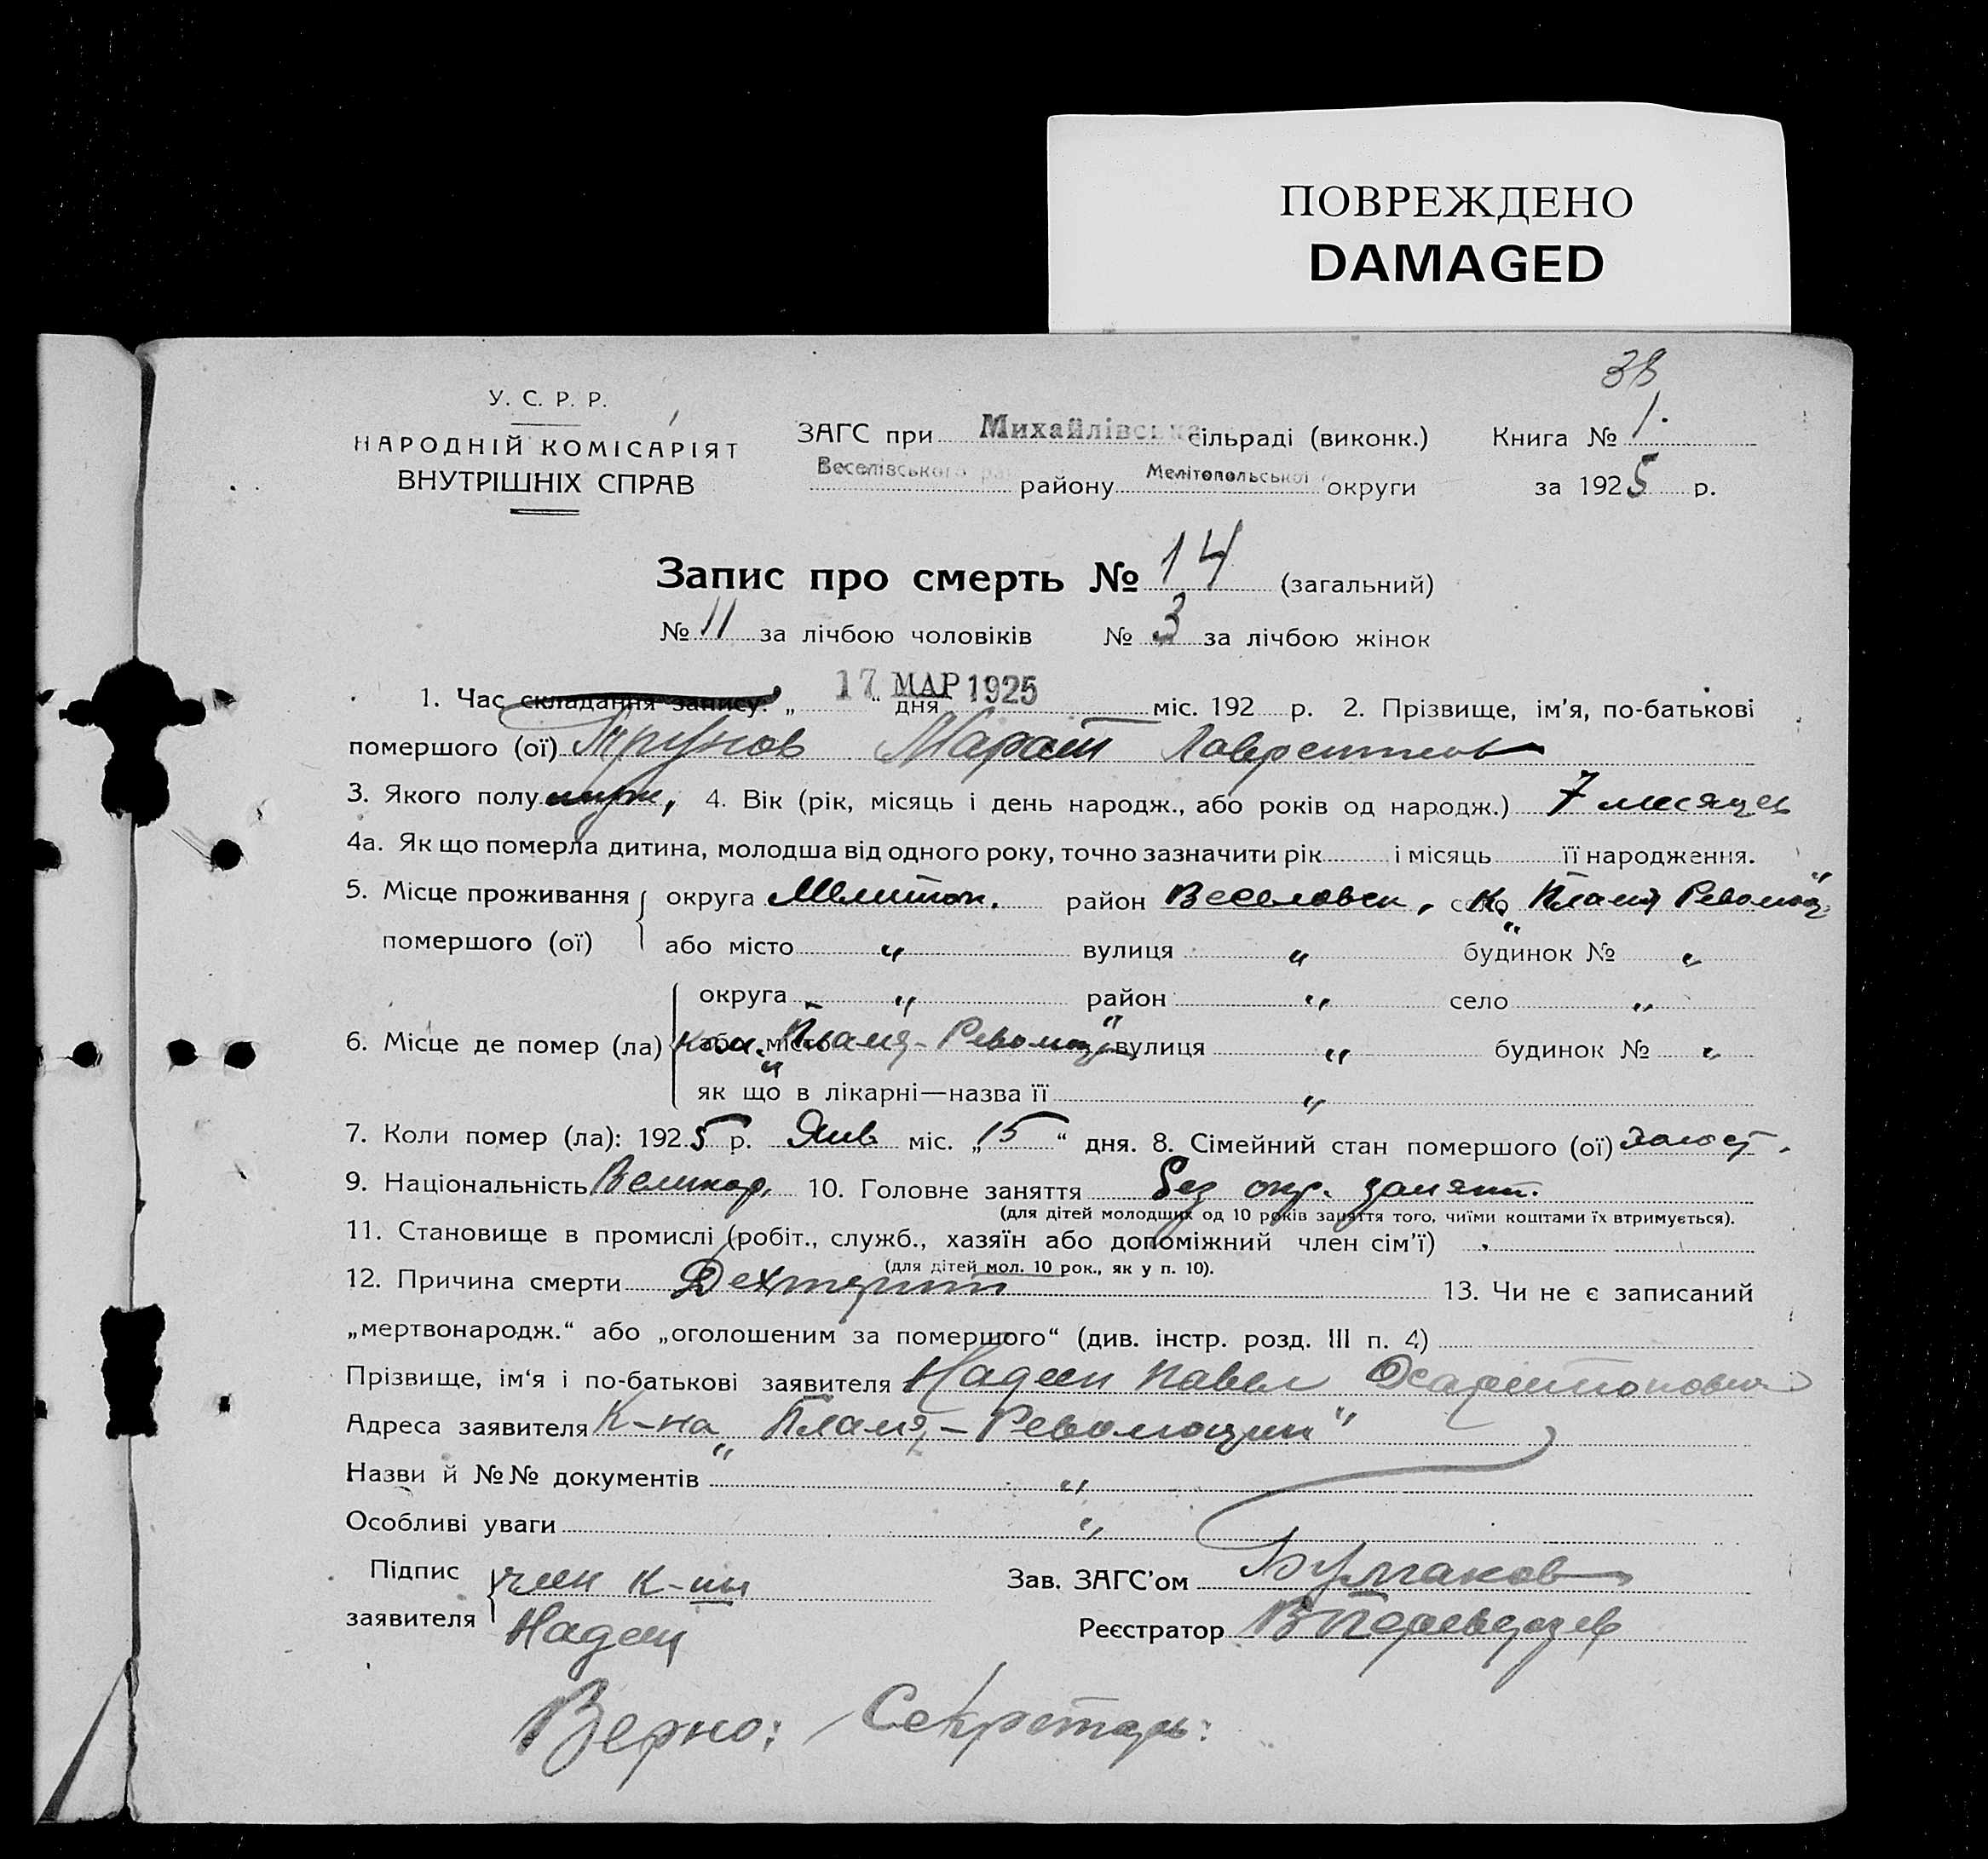 ПОВРЕЖДЕНО
DAMAGED
38
У. С. Р. Р.
НАРОДНІЙ КОМІСАРІЯТ
ВНУТРІШНІХ СПРАВ
ЗАГС при Михайлівська сільраді (виконк.) Книга № 1.
Веселівського району Мелітопольської округи за 1925 р.
Запис про смерть № 14 (загальний)
№ 11 за лічбою чоловіків № 3 за лічбою жінок
1. Час складання запису: „ 17 “ дня МАР 1925 міс. 192 р. 2. Прізвище, ім’я, по-батькові
помершого (ої) Трунов Марат Лаврентьев
3. Якого полу муж, 4. Вік (рік, місяць і день народж., або років од народж.) 7 месяцев
4а. Як що померла дитина, молодша від одного року, точно зазначити рік і місяць її народження.
5. Місце проживання округа Мелитоп. район Веселовск, село К. „Пламя Революц“
помершого (ої) або місто „ вулиця „ будинок № „
округа „ район „ село „
6. Місце де помер (ла) ком. або місто „Пламя-Революц“ вулиця „ будинок № „
як що в лікарні—назва її „
7. Коли помер (ла): 1925 р. Янв міс. „15“ дня. 8. Сімейний стан помершого (ої) холост.
9. Національність Великор. 10. Головне заняття Без опр. занят.
(для дітей молодших од 10 років заняття того, чиїми коштами їх втримується).
11. Становище в промислі (робіт., служб., хазяїн або допоміжний член сім’ї)
(для дітей мол. 10 рок., як у п. 10).
12. Причина смерти Дехтерит 13. Чи не є записаний
„мертвонародж.“ або „оголошеним за помершого“ (див. інстр. розд. III п. 4)
Прізвище, ім‘я і по-батькові заявителя Надеин Павел
Адреса заявителя К-на „Пламя-Революции“
Назви й №№ документів „
Особливі уваги „
Підпис член к-ны Зав. ЗАГС’ом Булгаков
заявителя Надеин Реєстратор
Верно: Секретарь: